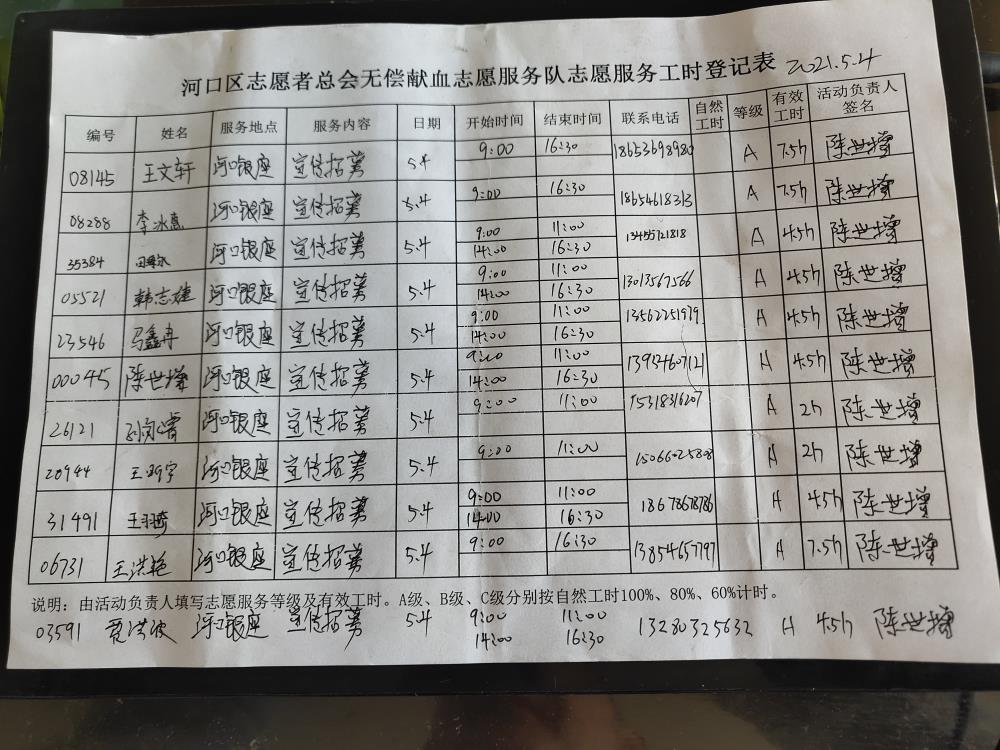 河口区志愿者总会无偿献血志愿服务队志愿服务工时登记表 2021.5.4
编号 姓名 服务地点 服务内容 日期 开始时间 结束时间 联系电话 自然工时 等级 有效工时 活动负责人签名
08145 王文轩 河口银座 宣传招募 5.4 9:00 16:30 18653698980 A 7.5h 陈世增
08288 李冰惠 河口银座 宣传招募 5.4 9:00 16:30 18654618313 A 7.5h 陈世增
35384 河口银座 宣传招募 5.4 9:00 11:00 13455721818 A 4.5h 陈世增
14:00 16:30
05521 韩志雄 河口银座 宣传招募 5.4 9:00 11:00 13013567566 A 4.5h 陈世增
14:00 16:30
23546 马鑫冉 河口银座 宣传招募 5.4 9:00 11:00 13562251979 A 4.5h 陈世增
14:00 16:30
00045 陈世增 河口银座 宣传招募 5.4 9:00 11:00 13954607121 A 4.5h 陈世增
14:00 16:30
26121 河口银座 宣传招募 5.4 9:00 11:00 15318316207 A 2h 陈世增
20944 河口银座 宣传招募 5.4 9:00 11:00 15066025808 A 2h 陈世增
31491 王羽琦 河口银座 宣传招募 5.4 9:00 11:00 18678678786 A 4.5h 陈世增
14:00 16:30
06731 王洪艳 河口银座 宣传招募 5.4 9:00 16:30 13854657797 A 7.5h 陈世增
说明：由活动负责人填写志愿服务等级及有效工时。A级、B级、C级分别按自然工时100%、80%、60%计时。
03591 贾洪波 河口银座 宣传招募 5.4 9:00 11:00 13280325632 A 4.5h 陈世增
14:00 16:30